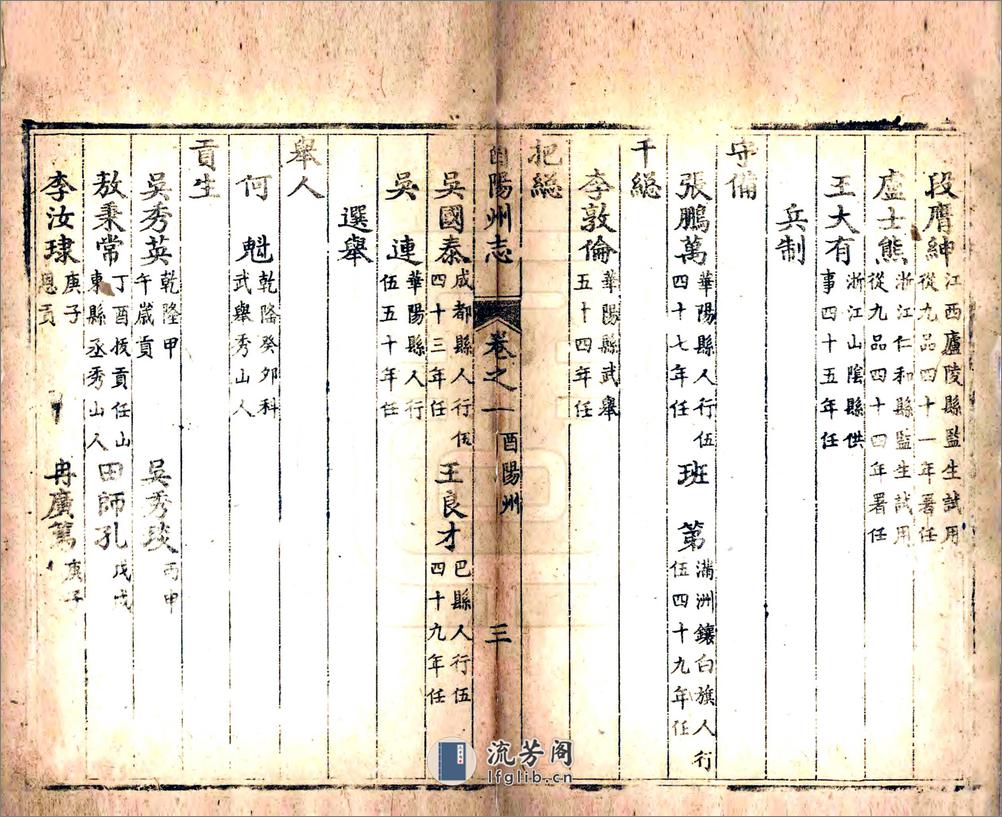 段膺紳 江西廬陵縣監生試用從九品四十一年署任
盧士熊 浙江仁和縣監生試用從九品四十四年署任
王大有 浙江山隂縣供事四十五年任
兵制
守備
張鵬萬 華陽縣人行伍四十七年任 班第 滿洲鑲白旗人行伍四十九年任
千總
李敦倫 華陽縣武舉五十四年任
把總
酉陽州志 卷之一 酉陽州 三
吳國泰 成都縣人行伍四十三年任 王良才 巴縣人行伍四十九年任
吳連 華陽縣人行伍五十年任
選舉
舉人
何魁 乾隆癸卯科武舉秀山人
貢生
吳秀英 乾隆甲午歲貢 吳秀琰 丙甲
敖秉常 丁酉拔貢任山東縣丞秀山人 田師孔 戊戌
李汝琹 庚子恩貢 冉廣篤 庚子
流芳阁
lfglib.cn